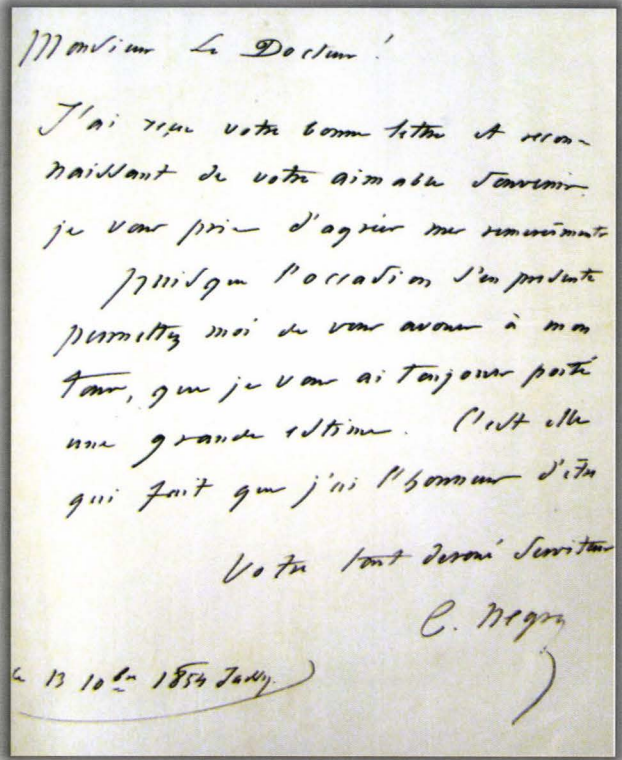 Monsieur Le Docteur!
J'ai reçu votre bonne lettre et recon-
naissant de votre aimable souvenir
je vous prie d'agréer mes remerciments
puisque l'occasion s'en présente
permettez moi de vous avouer à mon
tour, que je vous ai toujours porté
une grande estime. C'est elle
qui fait que j'ai l'honneur d'être
Votre tout dévoué serviteur
C. Negry
le 13 10bre 1854 Jassy.